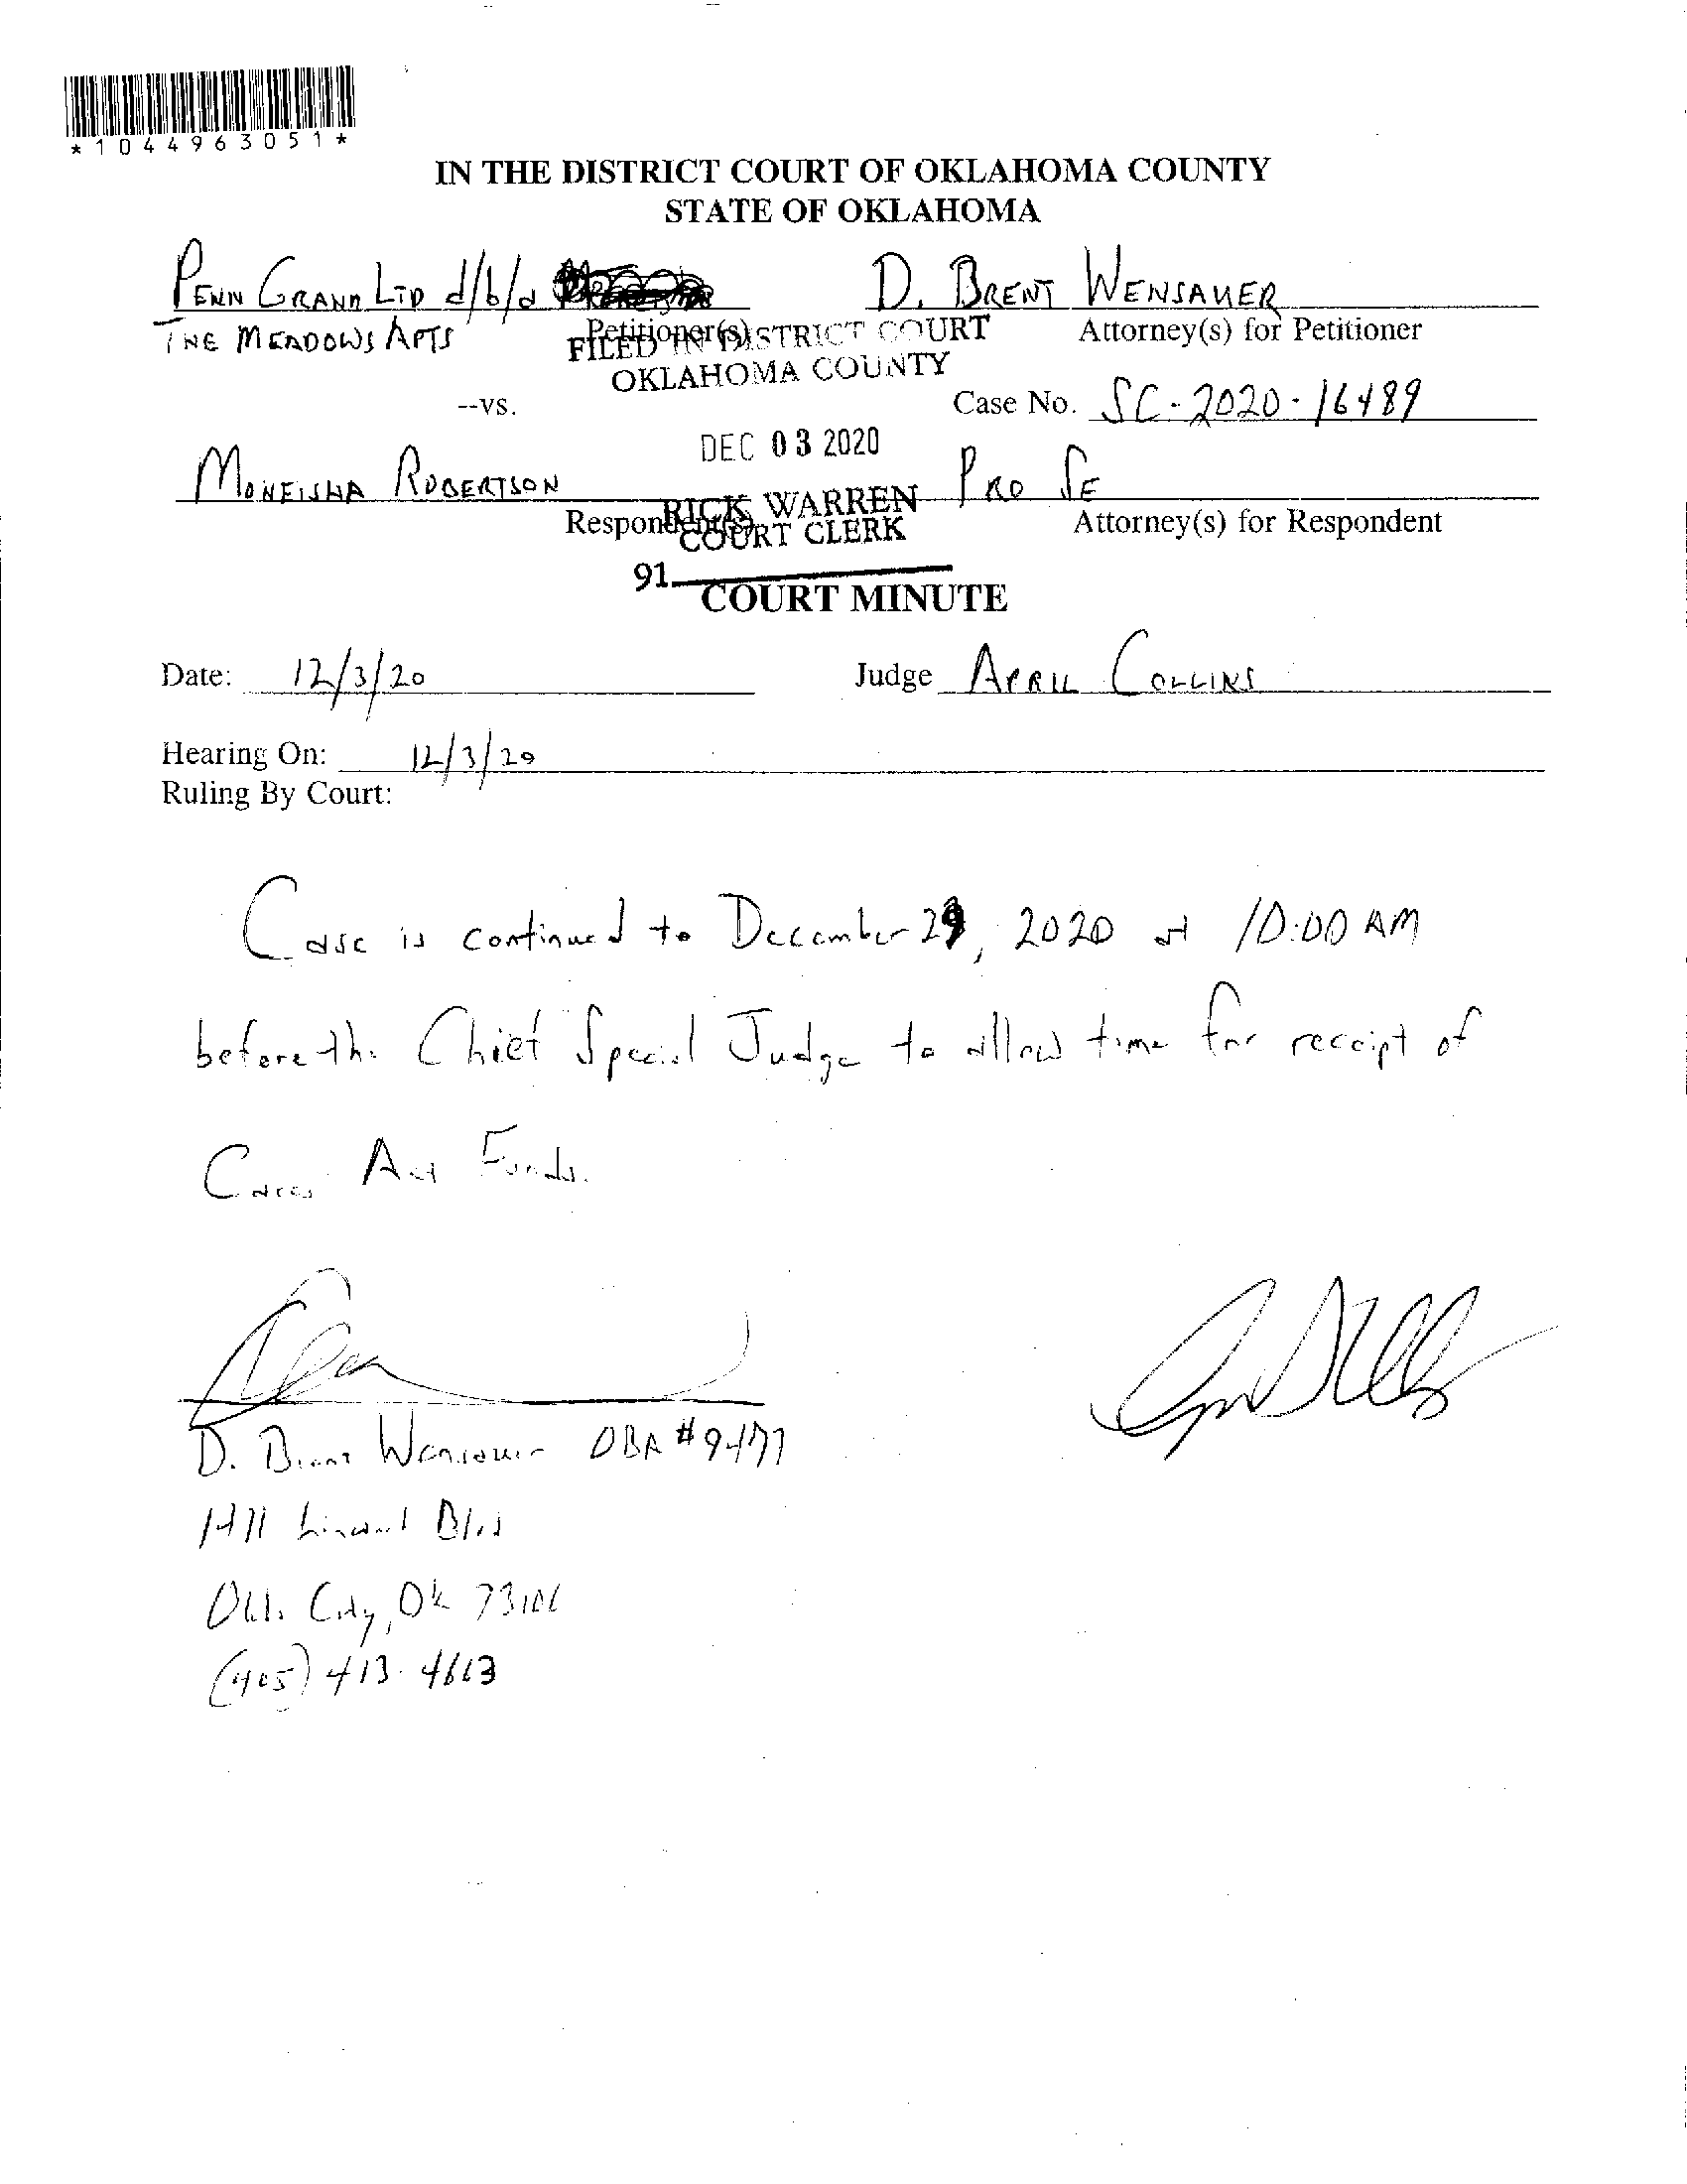 *1044963051*
IN THE DISTRICT COURT OF OKLAHOMA COUNTY
STATE OF OKLAHOMA
PENN GRAND LTD d/b/a
THE MEADOWS APTS
Petitioner(s)
D. BRENT WENSAUER
Attorney(s) for Petitioner
FILED IN DISTRICT COURT
OKLAHOMA COUNTY
--vs.
Case No. SC-2020-16489
DEC 03 2020
MONEISHA ROBERTSON
Respondent(s)
PRO SE
Attorney(s) for Respondent
RICK WARREN
COURT CLERK
91
COURT MINUTE
Date: 12/3/20
Judge APRIL COLLINS
Hearing On: 12/3/20
Ruling By Court:
Case is continued to December 29, 2020 at 10:00 AM
before the Chief Special Judge to allow time for receipt of
Cares Act Funds.
D. Brent Wensauer OBA #9477
1411 Linwood Blvd
Okla City, OK 73106
(405) 413-4663